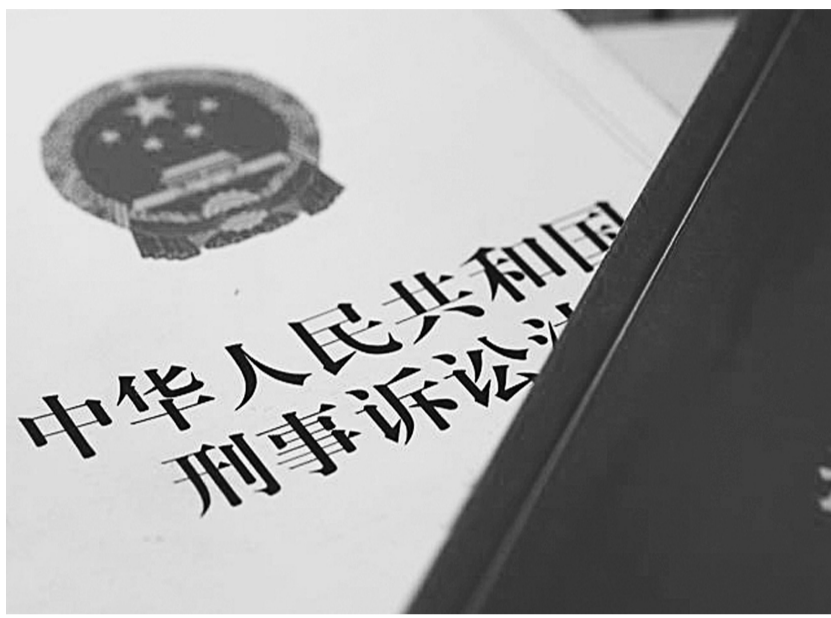 中华人民共和国
刑事诉讼法